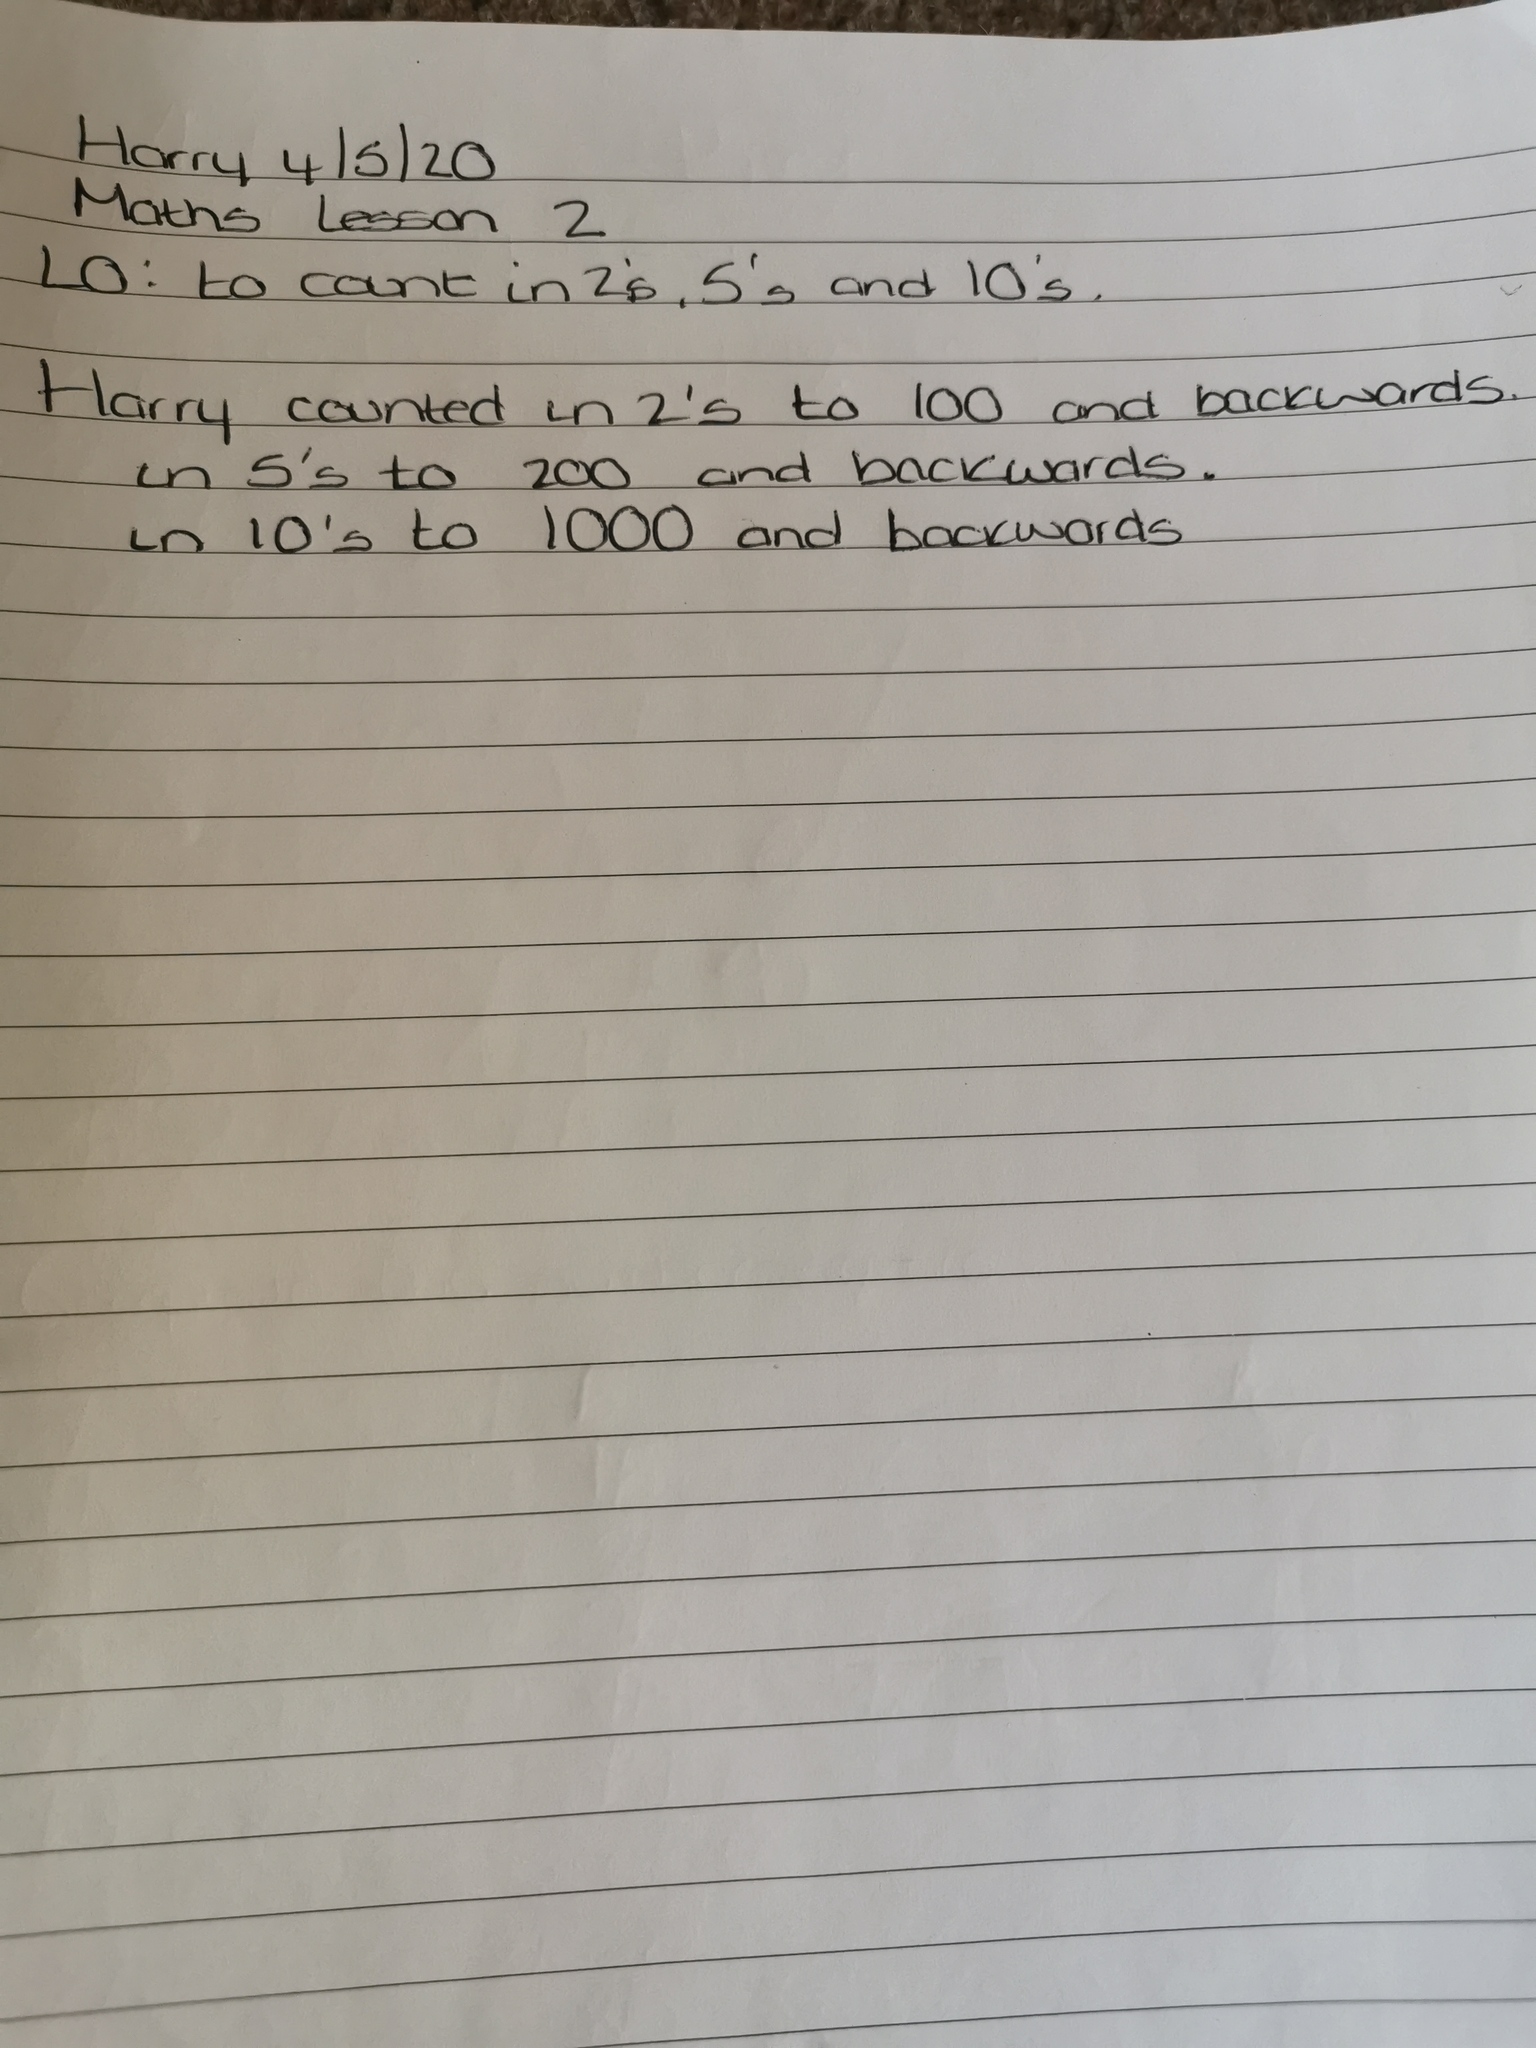 Harry 4/5/20
Maths Lesson 2
LO: to count in 2's, 5's and 10's.
Harry counted in 2's to 100 and backwards.
in 5's to 200 and backwards.
in 10's to 1000 and backwards